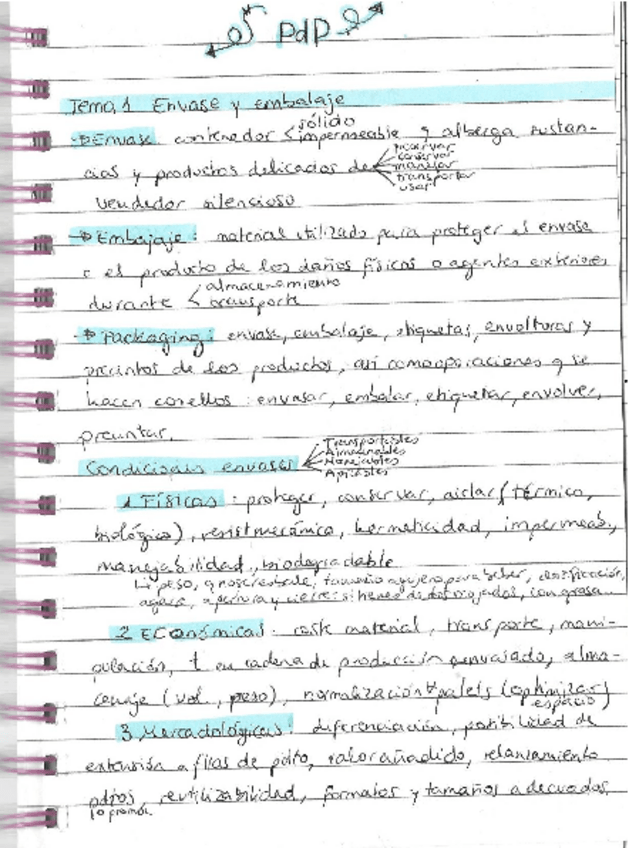 PdP
Tema 1 Envase y embalaje
Envase contenedor < sólido impermeable q alberga sustan-
cias y productos delicados de < preservar conservar manejar transportar usar
vendedor silencioso
Embajaje: material utilizado para proteger el envase
o el producto de los daños físicos o agentes exteriores
durante < almacenamiento transporte
Packaging: envase, embalaje, etiquetas, envolturas y
precintos de los productos, así como operaciones q se
hacen con ellos: envasar, embalar, etiquetar, envolver,
precintar.
Condiciones envases < Transportables Almacenables Manejables Apilables
1 Físicas: proteger, conservar, aislar (térmico,
biológico), resist mecánica, hermeticidad, impermeab.,
manejabilidad, biodegradable
peso, q no se resbale, tamaño agujero para beber, dosificación,
agarre, apertura y cierre: si tienes dedos mojados, con grasa...
2 Económicas: coste material, transporte, mani-
pulación, t en cadena de producción envasado, alma-
cenaje (vol., peso), normalización palets (optimizar
espacio)
3 Mercadológicas: diferenciación, posibilidad de
extensión a filas de pdto, valor añadido, relanzamiento
pdtos, reutilizabilidad, formatos y tamaños adecuados,
promoc.